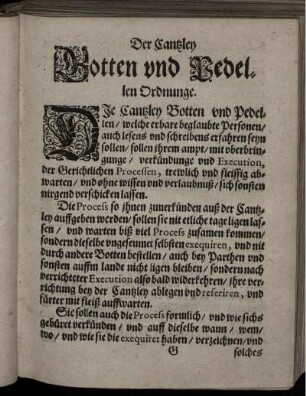 Der Cantzley
Botten vnd Pedel-
len Ordnunge.
DIe Cantzley Botten vnd Pedel
len / welche erbare beglaubte Personen /
auch lesens vnd schreibens erfahren seyn
sollen / sollen jhrem ampt / mit vberbrin-
gunge / verkündunge vnd Execution,
der Gerichtlichen Processen, trewlich vnd fleissig ab-
warten / vnd ohne wissen vnd verlaubnuß / sich sonsten
nirgend verschicken lassen.
Die Process so jhnen zuuerkünden auß der Cantz-
ley auffgeben werden / sollen sie nit etliche tage ligen las-
sen / vnd warten biß viel Process zusamen kommen /
sondern dieselbe vngeseumet selbsten exequiren, vnd nit
durch andere Botten bestellen / auch bey Parthen vnd
sonsten auffm lande nicht ligen bleiben / sondern nach
verrichteter Execution also bald widerkehren / jhre ver-
richtung bey der Cantzley ablegen vnd referiren, vnd
fürter mit fleiß auffwarten.
Sie sollen auch die Process formlich / vnd wie sichs
gebüret verkünden / vnd auff dieselbe wann / wem /
wo / vnd wie sie die exequiret haben / verzeichnen / vnd
G solches